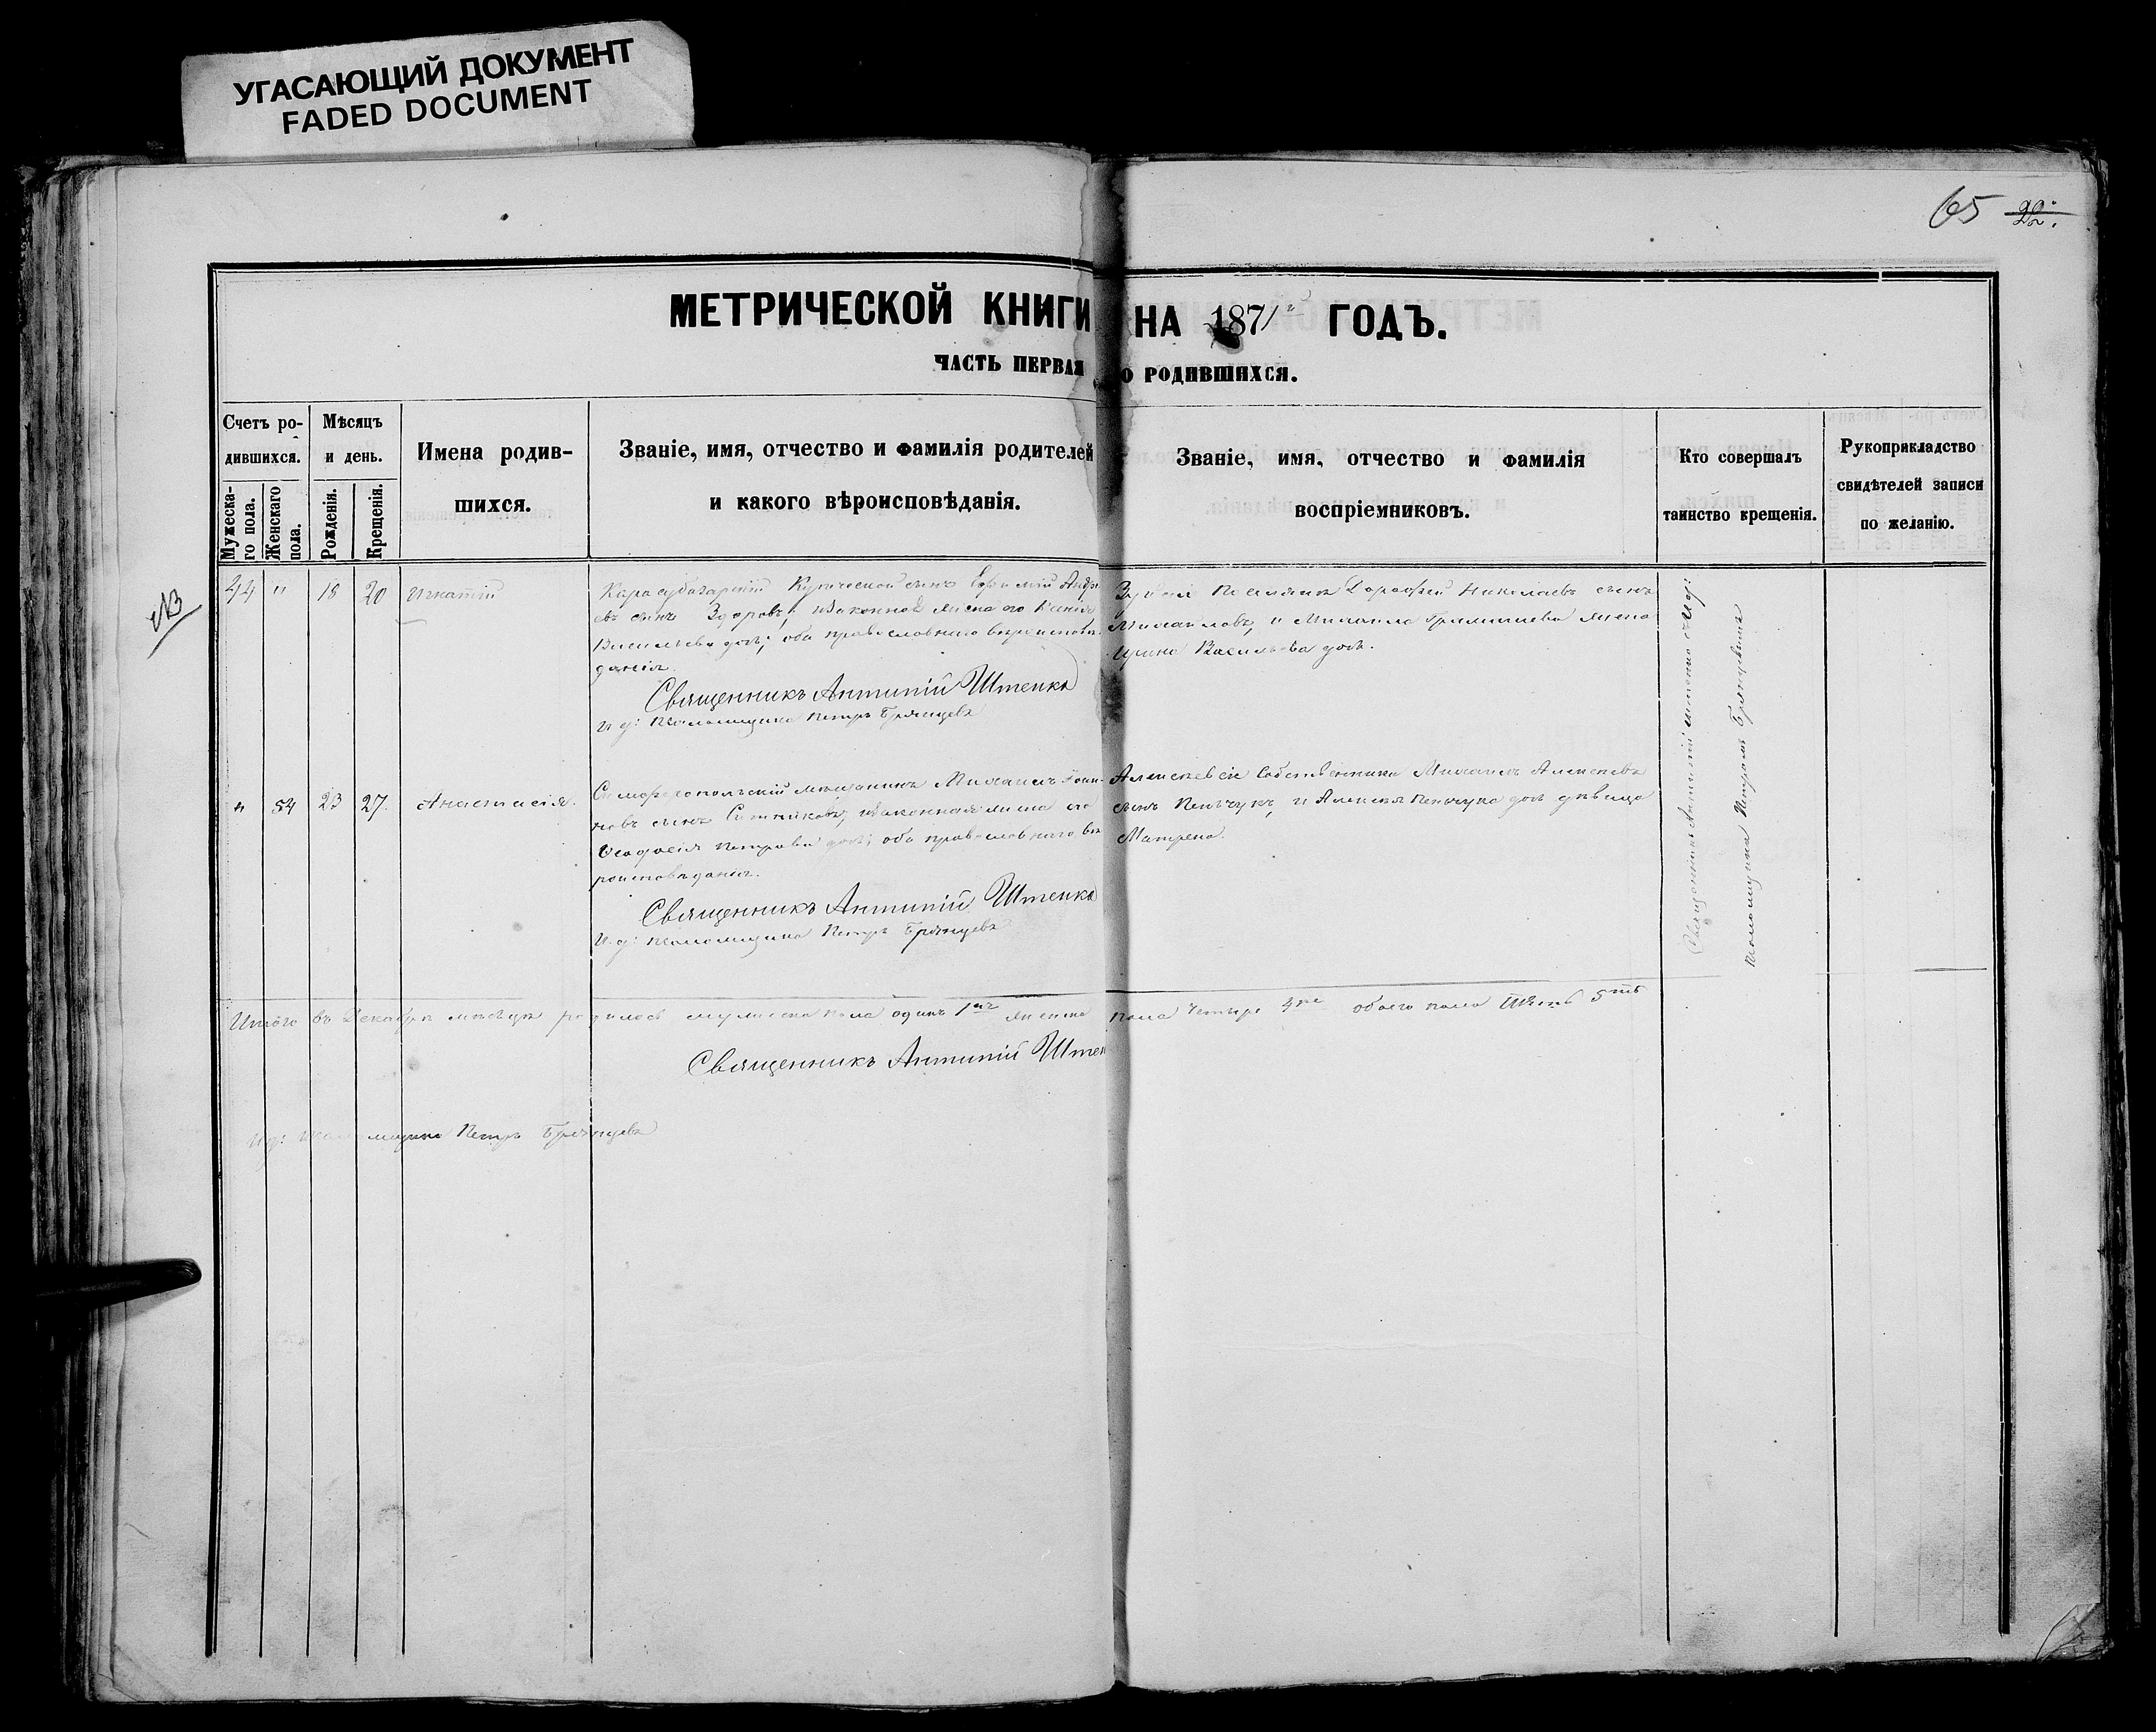 УГАСАЮЩИЙ ДОКУМЕНТ
FADED DOCUMENT
65 22.
МЕТРИЧЕСКОЙ КНИГИ НА 1871й ГОДЪ.
ЧАСТЬ ПЕРВАЯ, О РОДИВШИХСЯ.
Счетъ ро-
дившихся.
Мужеска-
го пола.
Женскаго
пола.
Мѣсяцъ
и день.
Рожденія.
Крещенія.
Имена родив-
шихся.
Званіе, имя, отчество и фамилія родителей
и какого вѣроисповѣданія.
Званіе, имя, отчество и фамилія
воспріемниковъ.
Кто совершалъ
таинство крещенія.
Рукоприкладство
свидѣтелей записи
по желанію.
NB
44 " 18 20 Игнатій
Карасубазарскій Купеческой сынъ Ефимій Андре
евъ сынъ Здоровъ, и законная жена его Ксенія
Васильева дочь; оба православнаго вѣроисповѣ
данія.
Священникъ Антипій Штепка
И д: Паломщика Петръ Брянцевъ
Дорофей Николаевъ сынъ
Михайловъ, и Михаила жена
Ирина Васильева дочь.
" 54 23 27. Анастасія.
Симферопольскій мѣщанинъ Михаилъ Іоан
новъ сынъ Ситниковъ, и законная жена его
Ѳеодосія Петрова дочь; оба православнаго вѣ
роисповѣданія.
Священникъ Антипій Штепка
И. д: Паломщика Петръ Брянцевъ
Собственники Михаилъ Алексѣевъ
сынъ и Алексѣя дочь дѣвица
Матрена.
Священникъ Антипій Штепка с И д:
Паломщика Петромъ Брянцевымъ
Итого въ Декабрѣ мѣсяцѣ родилось мужеска пола одинъ 1нъ женска пола четыре 4ре обоего пола пять 5ть
Священникъ Антипій Штеп
И д: Паломщика Петръ Брянцевъ